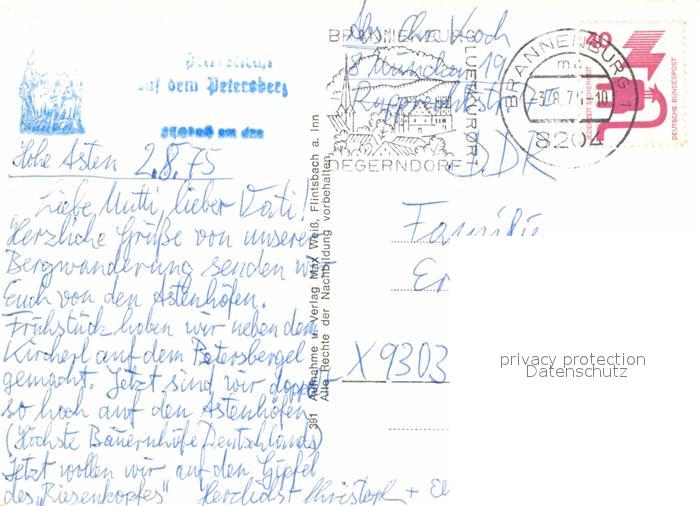 auf dem Petersberg
Hohe Asten 2.8.75
Liebe Mutti, lieber Vati!
Herzliche Grüße von unserer
Bergwanderung senden wir
Euch von den Astenhöfen.
Frühstück haben wir neben dem
Kircherl auf dem Petersbergel
gemacht. Jetzt sind wir doppelt
so hoch auf den Astenhöfen
(Höchste Bauernhöfe Deutschlands)
Jetzt wollen wir auf den Gipfel
des "Riesenkopfes" Herzlichst Christoph + El
391 Aufnahme u. Verlag Max Weiß, Flintsbach a. Inn
Alle Rechte der Nachbildung vorbehalten
BRANNENBURG
LUFTKURORT
DEGERNDORF
Abs. Chr. Koch
8 München 19
DDR
Familie
Er
X9303
BRANNENBURG 1
8204
40
DEUTSCHE BUNDESPOST
privacy protection
Datenschutz